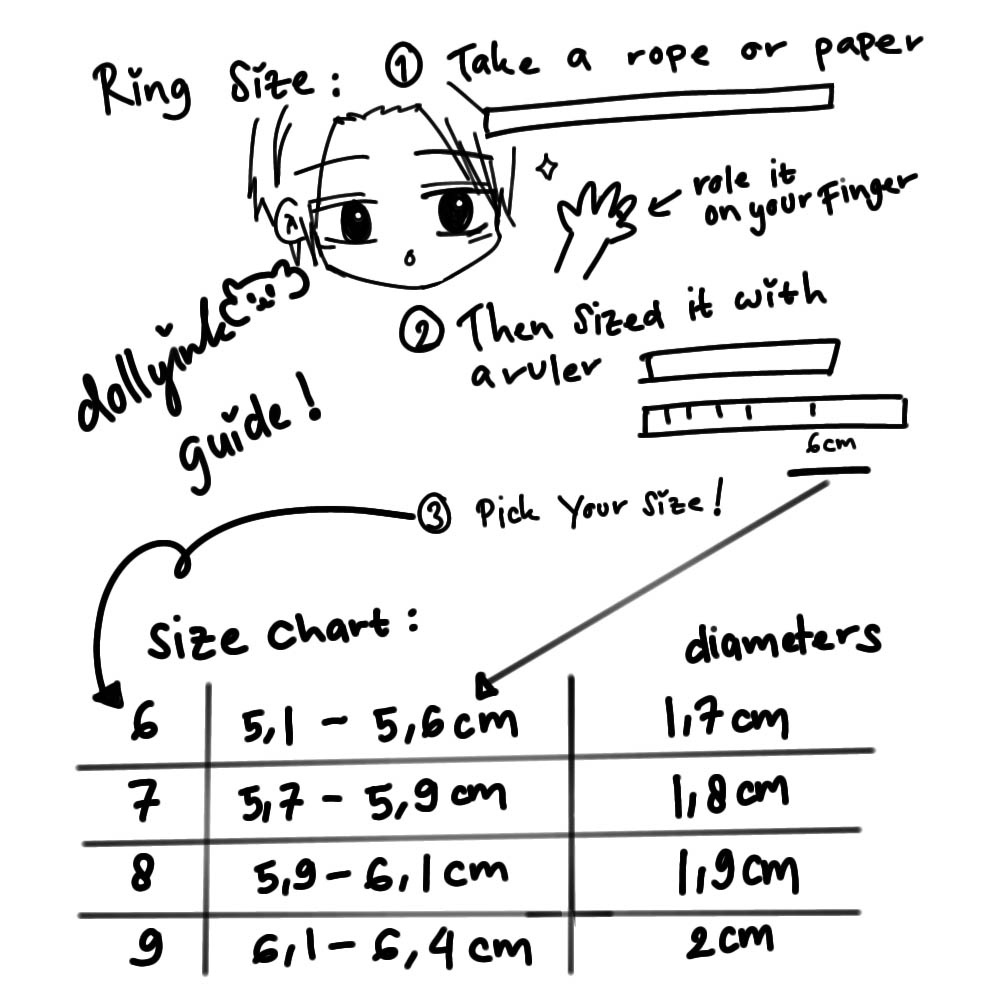 Ring Size :
① Take a rope or paper
role it
on your Finger
dollyink
guide!
② Then Sized it with
a ruler
6cm
③ Pick Your Size!
Size Chart :
diameters
6 5,1 - 5,6 cm 1,7 cm
7 5,7 - 5,9 cm 1,8 cm
8 5,9 - 6,1 cm 1,9 cm
9 6,1 - 6,4 cm 2 cm